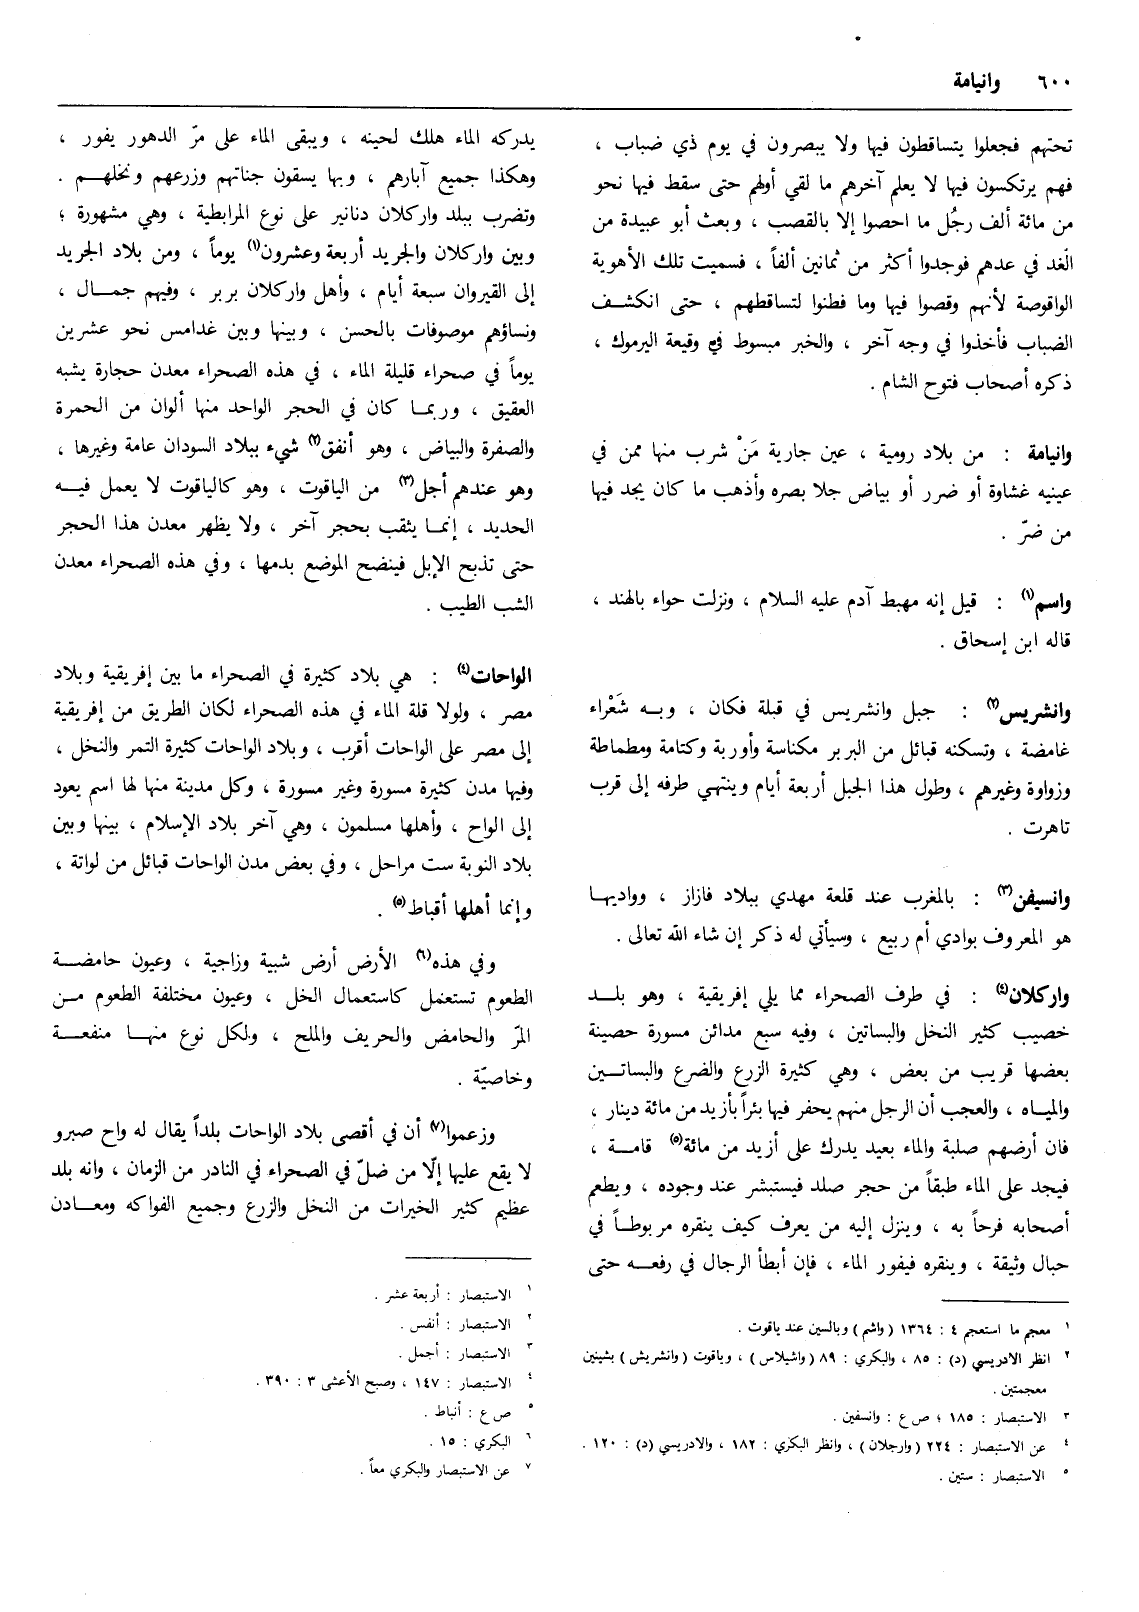 ٦٠٠ وانيامة
تحتهم فجعلوا يتساقطون فيها ولا يبصرون في يوم ذي ضباب ،
فهم يرتكسون فيها لا يعلم آخرهم ما لقي أولهم حتى سقط فيها نحو
من مائة ألف رجُل ما احصوا إلا بالقصب ، وبعث أبو عبيدة من
الغد في عدهم فوجدوا أكثر من ثمانين ألفاً ، فسميت تلك الأهوية
الواقوصة لأنهم وقصوا فيها وما فطنوا لتساقطهم ، حتى انكشف
الضباب فأخذوا في وجه آخر ، والخبر مبسوط في وقيعة اليرموك ،
ذكره أصحاب فتوح الشام .
وانيامة : من بلاد رومية ، عين جارية مَنْ شرب منها ممن في
عينيه غشاوة أو ضرر أو بياض جلا بصره وأذهب ما كان يجد فيها
من ضرّ .
واسم(١) : قيل إنه مهبط آدم عليه السلام ، ونزلت حواء بالهند ،
قاله ابن إسحاق .
وانشريس(٢) : جبل وانشريس في قبلة فكان ، وبه شَعْراء
غامضة ، وتسكنه قبائل من البربر مكناسة وأوربة وكتامة ومطماطة
وزواوة وغيرهم ، وطول هذا الجبل أربعة أيام وينتهي طرفه إلى قرب
تاهرت .
وانسيفن(٣) : بالمغرب عند قلعة مهدي ببلاد فازاز ، وواديها
هو المعروف بوادي أم ربيع ، وسيأتي له ذكر إن شاء الله تعالى .
واركلان(٤) : في طرف الصحراء مما يلي إفريقية ، وهو بلد
خصيب كثير النخل والبساتين ، وفيه سبع مدائن مسورة حصينة
بعضها قريب من بعض ، وهي كثيرة الزرع والضرع والبساتين
والمياه ، والعجب أن الرجل منهم يحفر فيها بئراً بأزيد من مائة دينار ،
فان أرضهم صلبة والماء بعيد يدرك على أزيد من مائة(٥) قامة ،
فيجد على الماء طبقاً من حجر صلد فيستبشر عند وجوده ، ويطعم
أصحابه فرحاً به ، وينزل إليه من يعرف كيف ينقره مربوطاً في
حبال وثيقة ، وينقره فيفور الماء ، فإن أبطأ الرجال في رفعه حتى
١ معجم ما استعجم ٤ : ١٣٦٤ (واشم) وبالسين عند ياقوت .
٢ انظر الادريسي (د) : ٨٥ ، والبكري : ٨٩ (واشيلاس) ، وياقوت (وانشريش) بشينين
معجمتين .
٣ الاستبصار : ١٨٥ ؛ ص ع : وانسفين .
٤ عن الاستبصار : ٢٢٤ (وارجلان) ، وانظر البكري : ١٨٢ ، والادريسي (د) : ١٢٠ .
٥ الاستبصار : ستين .
يدركه الماء هلك لحينه ، ويبقى الماء على مرّ الدهور يفور ،
وهكذا جميع آبارهم ، وبها يسقون جناتهم وزرعهم ونخلهم .
وتضرب ببلد واركلان دنانير على نوع المرابطية ، وهي مشهورة ؛
وبين واركلان والجريد أربعة وعشرون(١) يوماً ، ومن بلاد الجريد
إلى القيروان سبعة أيام ، وأهل واركلان بربر ، وفيهم جمال ،
ونساؤهم موصوفات بالحسن ، وبينها وبين غدامس نحو عشرين
يوماً في صحراء قليلة الماء ، في هذه الصحراء معدن حجارة يشبه
العقيق ، وربما كان في الحجر الواحد منها ألوان من الحمرة
والصفرة والبياض ، وهو أنفق(٢) شيء ببلاد السودان عامة وغيرها ،
وهو عندهم أجل(٣) من الياقوت ، وهو كالياقوت لا يعمل فيه
الحديد ، إنما يثقب بحجر آخر ، ولا يظهر معدن هذا الحجر
حتى تذبح الإبل فينضح الموضع بدمها ، وفي هذه الصحراء معدن
الشب الطيب .
الواحات(٤) : هي بلاد كثيرة في الصحراء ما بين إفريقية وبلاد
مصر ، ولولا قلة الماء في هذه الصحراء لكان الطريق من إفريقية
إلى مصر على الواحات أقرب ، وبلاد الواحات كثيرة التمر والنخل ،
وفيها مدن كثيرة مسورة وغير مسورة ، وكل مدينة منها لها اسم يعود
إلى الواح ، وأهلها مسلمون ، وهي آخر بلاد الإسلام ، بينها وبين
بلاد النوبة ست مراحل ، وفي بعض مدن الواحات قبائل من لواتة ،
وإنما أهلها أقباط(٥) .
وفي هذه(٦) الأرض أرض شبية وزاجية ، وعيون حامضة
الطعوم تستعمل كاستعمال الخل ، وعيون مختلفة الطعوم من
المرّ والحامض والحريف والملح ، ولكل نوع منها منفعة
وخاصيّة .
وزعموا(٧) أن في أقصى بلاد الواحات بلداً يقال له واح صبرو
لا يقع عليها إلّا من ضلّ في الصحراء في النادر من الزمان ، وانه بلد
عظيم كثير الخيرات من النخل والزرع وجميع الفواكه ومعادن
١ الاستبصار : أربعة عشر .
٢ الاستبصار : أنفس .
٣ الاستبصار : أجمل .
٤ الاستبصار : ١٤٧ ، وصبح الأعشى ٣ : ٣٩٠ .
٥ ص ع : أنباط .
٦ البكري : ١٥ .
٧ عن الاستبصار والبكري معاً .